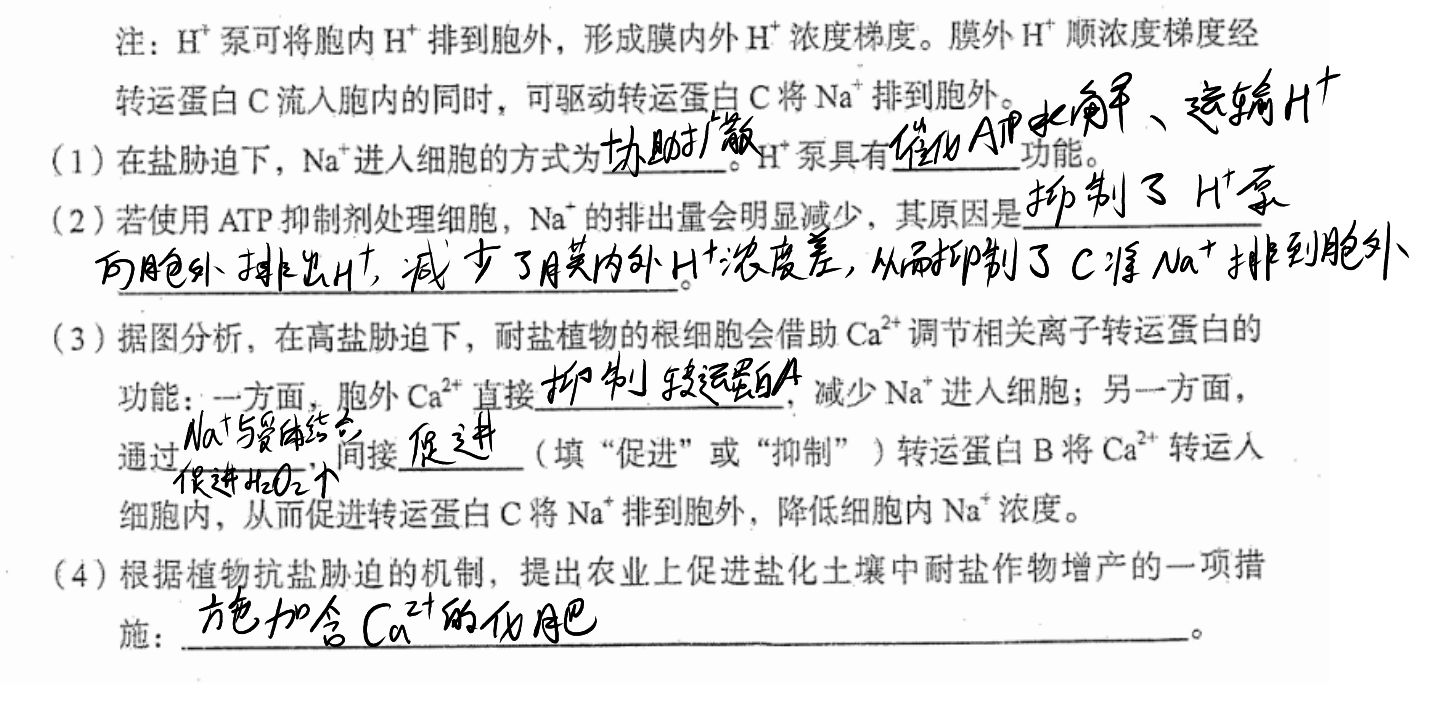 注：H⁺ 泵可将胞内 H⁺ 排到胞外，形成膜内外 H⁺ 浓度梯度。膜外 H⁺ 顺浓度梯度经
转运蛋白 C 流入胞内的同时，可驱动转运蛋白 C 将 Na⁺ 排到胞外。
（1）在盐胁迫下，Na⁺进入细胞的方式为协助扩散。H⁺泵具有催化ATP水解、运输H⁺功能。
（2）若使用 ATP 抑制剂处理细胞，Na⁺ 的排出量会明显减少，其原因是抑制了 H⁺泵
向胞外排出H⁺，减少了膜内外H⁺浓度差，从而抑制了C将Na⁺排到胞外。
（3）据图分析，在高盐胁迫下，耐盐植物的根细胞会借助 Ca²⁺ 调节相关离子转运蛋白的
功能：一方面，胞外 Ca²⁺ 直接抑制转运蛋白A，减少 Na⁺ 进入细胞；另一方面，
通过Na⁺与受体结合促进H₂O₂↑，间接促进（填“促进”或“抑制”）转运蛋白 B 将 Ca²⁺ 转运入
细胞内，从而促进转运蛋白 C 将 Na⁺ 排到胞外，降低细胞内 Na⁺ 浓度。
（4）根据植物抗盐胁迫的机制，提出农业上促进盐化土壤中耐盐作物增产的一项措
施：施加含Ca²⁺的化肥。